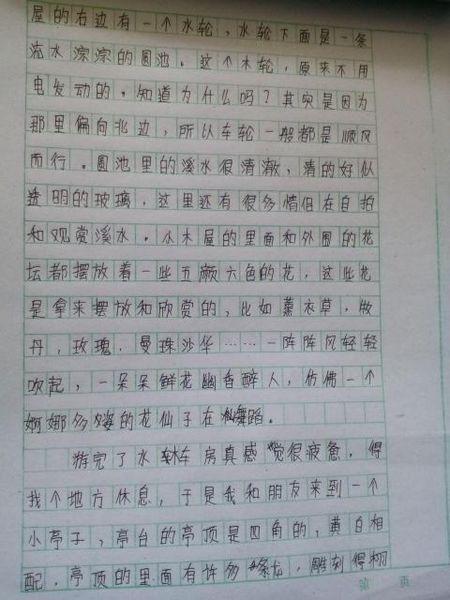 屋的右边有一个水轮，水轮下面是一条
流水淙淙的圆池。这个木轮，原来不用
电发动的。知道为什么吗？其实是因为
那里偏向北边，所以车轮一般都是顺风
而行。圆池里的溪水很清澈，清的好似
透明的玻璃，这里还有很多情侣在自拍
和观赏溪水。小木屋的里面和外围的花
坛都摆放着一些五颜六色的花，这些花
是拿来摆放和欣赏的，比如薰衣草，牡
丹，玫瑰，曼珠沙华……一阵阵风轻轻
吹起，一朵朵鲜花幽香醉人，仿佛一个
婀娜多姿的花仙子在舞蹈。
游完了水车房真感觉很疲惫，得
找个地方休息，于是我和朋友来到一个
小亭子，亭台的亭顶是四角的，黄白相
配，亭顶的里面有许多条龙，雕刻得栩
第 页